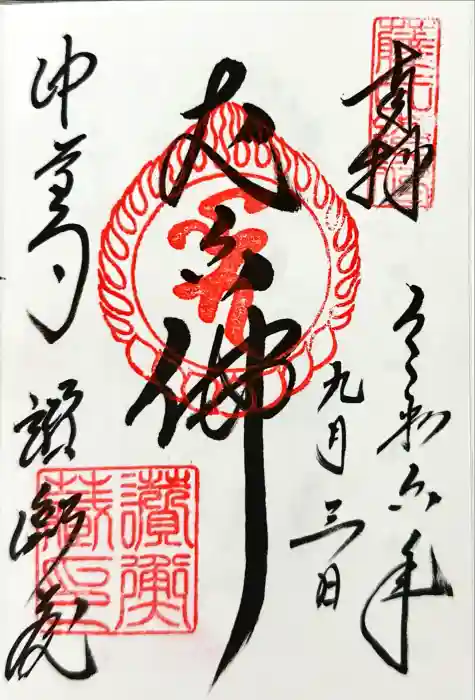 奉拝
令和六年
九月三日
丈六佛
中尊寺
讃衡蔵
讃衡
蔵印